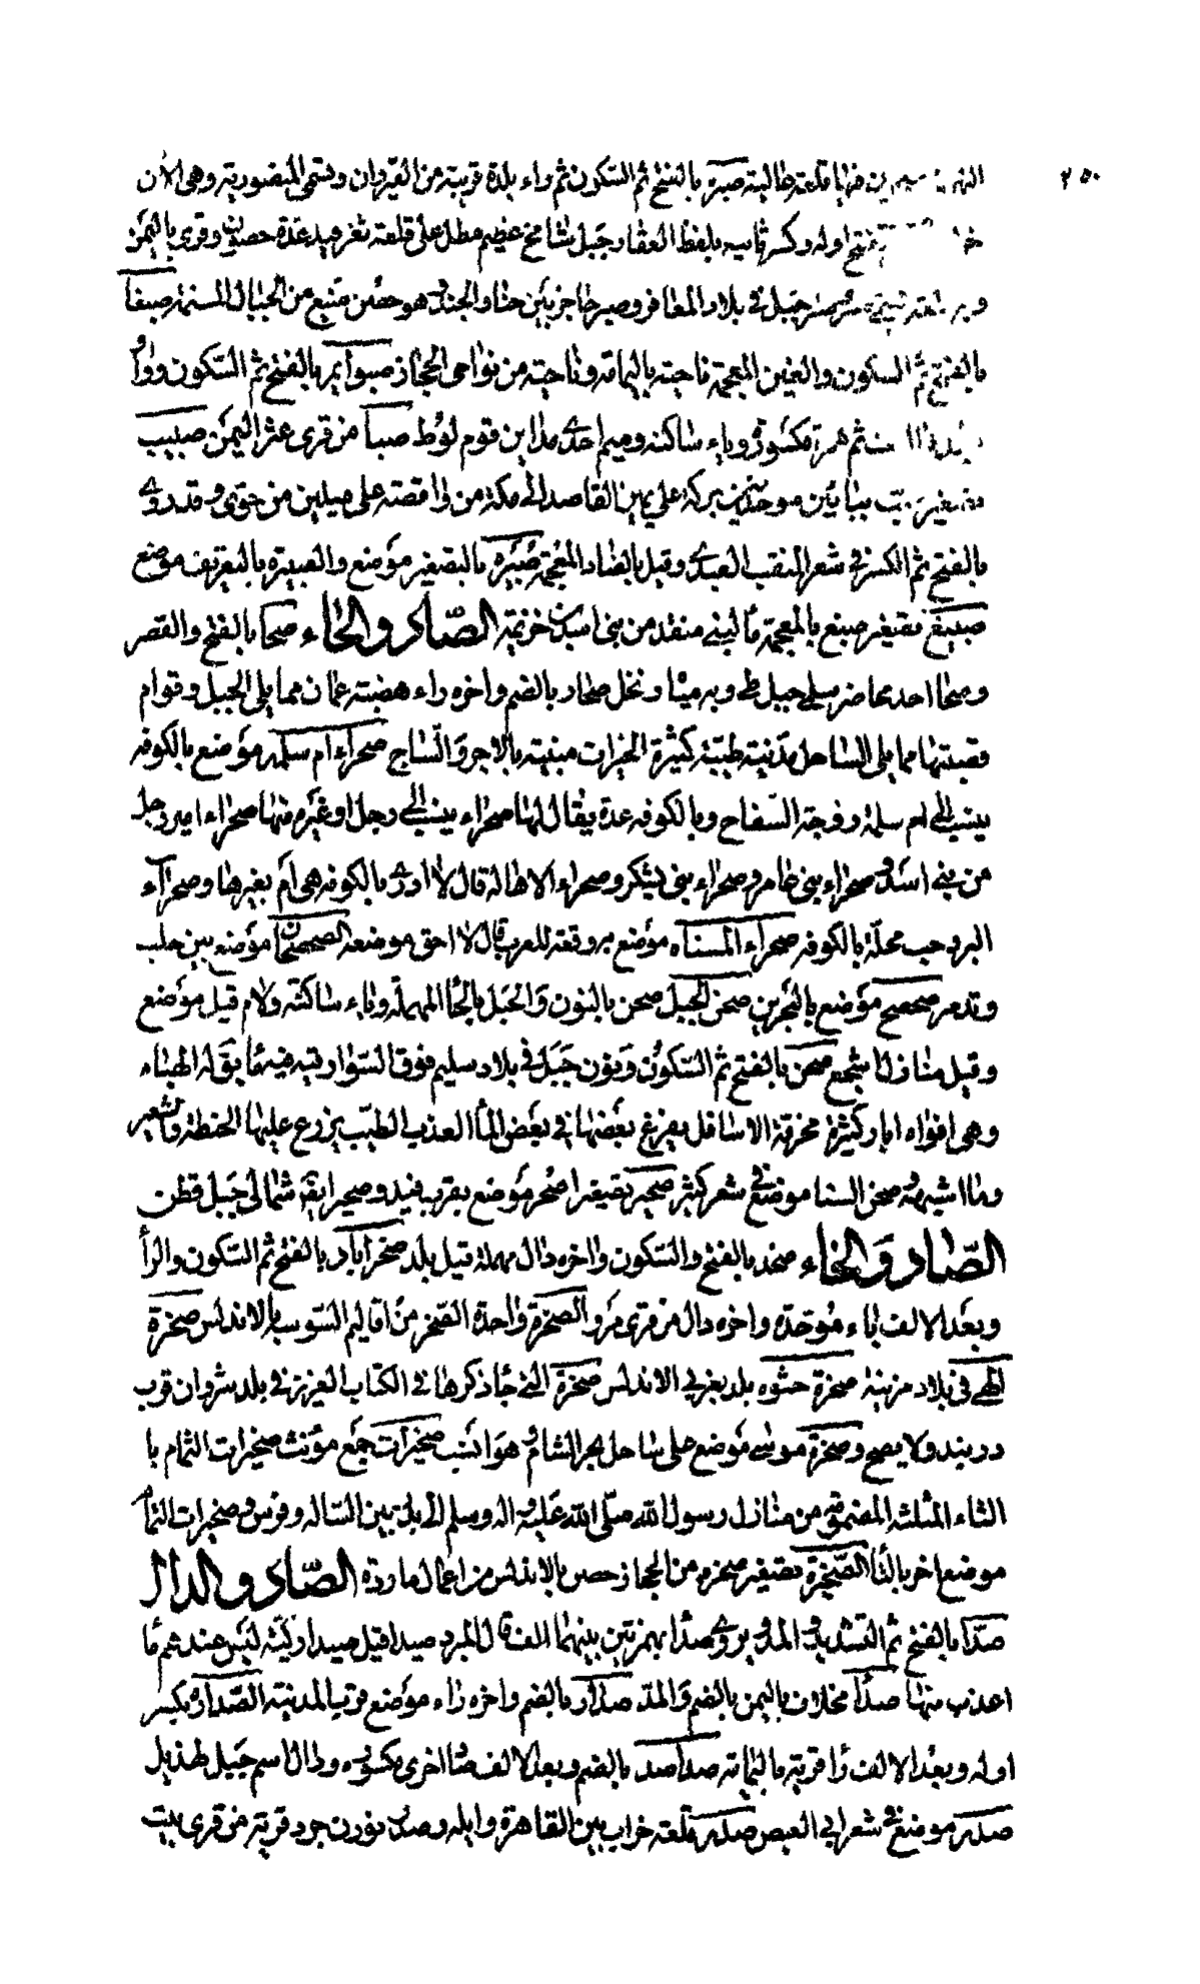 ٢٥٠
قلعة عالية صبرة بالفتح ثم السكون ثم راء بلدة قريبة من القيروان وتسمى المنصورية وهى الآن
بفتح اوله وكسر ثانيه بلفظ العقار جبل شامخ عظيم مطل على قلعة تعز فيه عدة حصون وقرى باليمن
جبل فى بلاد المعافر وصبر حاجز بين جبا والجند وهو حصن منيع من الجبال المسنمة صبغا
بالفتح ثم السكون والغين المعجمة ناحية باليمامة وناحية من نواحى الحجاز صبوايم بالفتح ثم السكون وواو
ثم همزة مكسورة وياء ساكنة وميم احدى مداين قوم لوط صبيا من قرى عثر اليمن صبيب
تصغير صب ببائين موحدتين بركة على يمين القاصد الى مكة من واقصة على ميلين من جوى وقد روى
بالفتح ثم الكسر فى شعر المثقب العبدى وقيل بالضاد المعجمة صبيرة بالتصغير موضع والصبيرة بالتعريف موضع
صبيغ تصغير صبغ بالمعجمة ماء لبنى منقذ من بنى اسد بن خزيمة الصاد والحاء صحا بالفتح والقصر
وصحا احد محاضر سلمى جبل طى وبه مياه ونخل صحار بالضم واخره راء هضبة عمان مما يلى الجبل وتوام
قصبتها مما يلى الساحل مدينة طيبة كثيرة الخيرات مبنية بالاجر والساج صحراء ام سلمة موضع بالكوفه
ينسب الى ام سلمة زوجة السفاح وبالكوفه عدة يقال لها صحراء ينسب الى رجل او غيره منها صحراء اميرد رجل
من بنى اسد وصحراء بنى عامر وصحراء بنى يشكر وصحراء الاهالة قال لا ادرى بالكوفه هى أم بغيرها وصحراء
البردخت محلة بالكوفه صحراء المسناه موضع به وقعة للعرب قال لا احق موضعه الصحصحان موضع بين حلب
وتدمر صحصح موضع بالبحرين صحن الحبل صحن بالنون والحبل بالحاء المهملة وباء ساكنة ولام قيل موضع
وقيل منازل اشجع صحن بالفتح ثم السكون ونون جبل فى بلاد سليم فوق السوارقية فيه ماء يقال له الهباء
وهى افواه ابار كثيرة مخرقة الاسافل يفرغ بعضها فى بعض الماء العذب الطيب يزرع عليها الحنطة والشعير
وما اشبهه صحن الشبا موضع فى شعر كثير صحير تصغير اصحر موضع بقرب فيد وصحير ايضا شمالى جبل قطن
الصاد والخاء صخد بالفتح والسكون واخره دال مهملة قيل بلد صخراباد بالفتح ثم السكون والراء
وبعد الالف باء موحدة واخره دال من قرى مرو الصخرة واحدة الصخر من اقاليم اكشونية بالاندلس صخرة
فى بلاد مزينة صخرة حيوه بلد بغربى الاندلس صخرة التى جاء ذكرها فى الكتاب العزيز فى بلد شروان قرب
دربند ولا يصح وصخرة موسى موضع على ساحل بحر الشام وهو انسب صخيرات جمع مؤنث صخيرات الثمام با
الثاء المثلثة المضمومة من منازل رسول الله صلى الله عليه واله وسلم الى بدر بين السيالة وفرش وصخيرات اليمام
موضع اخر بالياء الصخيرة تصغير صخره من الحجاز حصن بالاندلس من اعمال ماردة الصاد والدال
صداء بالفتح ثم التشديد والمد ويروى صدأا بهمزتين بينهما الف قال المبرد صيدا قيل صيدا ركية ليس عندهم ماء
اعذب منها صداء مخلاف باليمن بالضم والمد صدار بالضم واخره راء موضع قرب المدينة الصدارة بكسر
اوله وبعد الالف راء قرية باليمامة صداصد بالضم وبعد الالف صاد اخرى مكسوره ودال اسم جبل لهذيل
صدر موضع فى شعر ابى العيص صدر قلعة خراب بين القاهرة وايله وصدر بوزن جرد قرية من قرى بيت